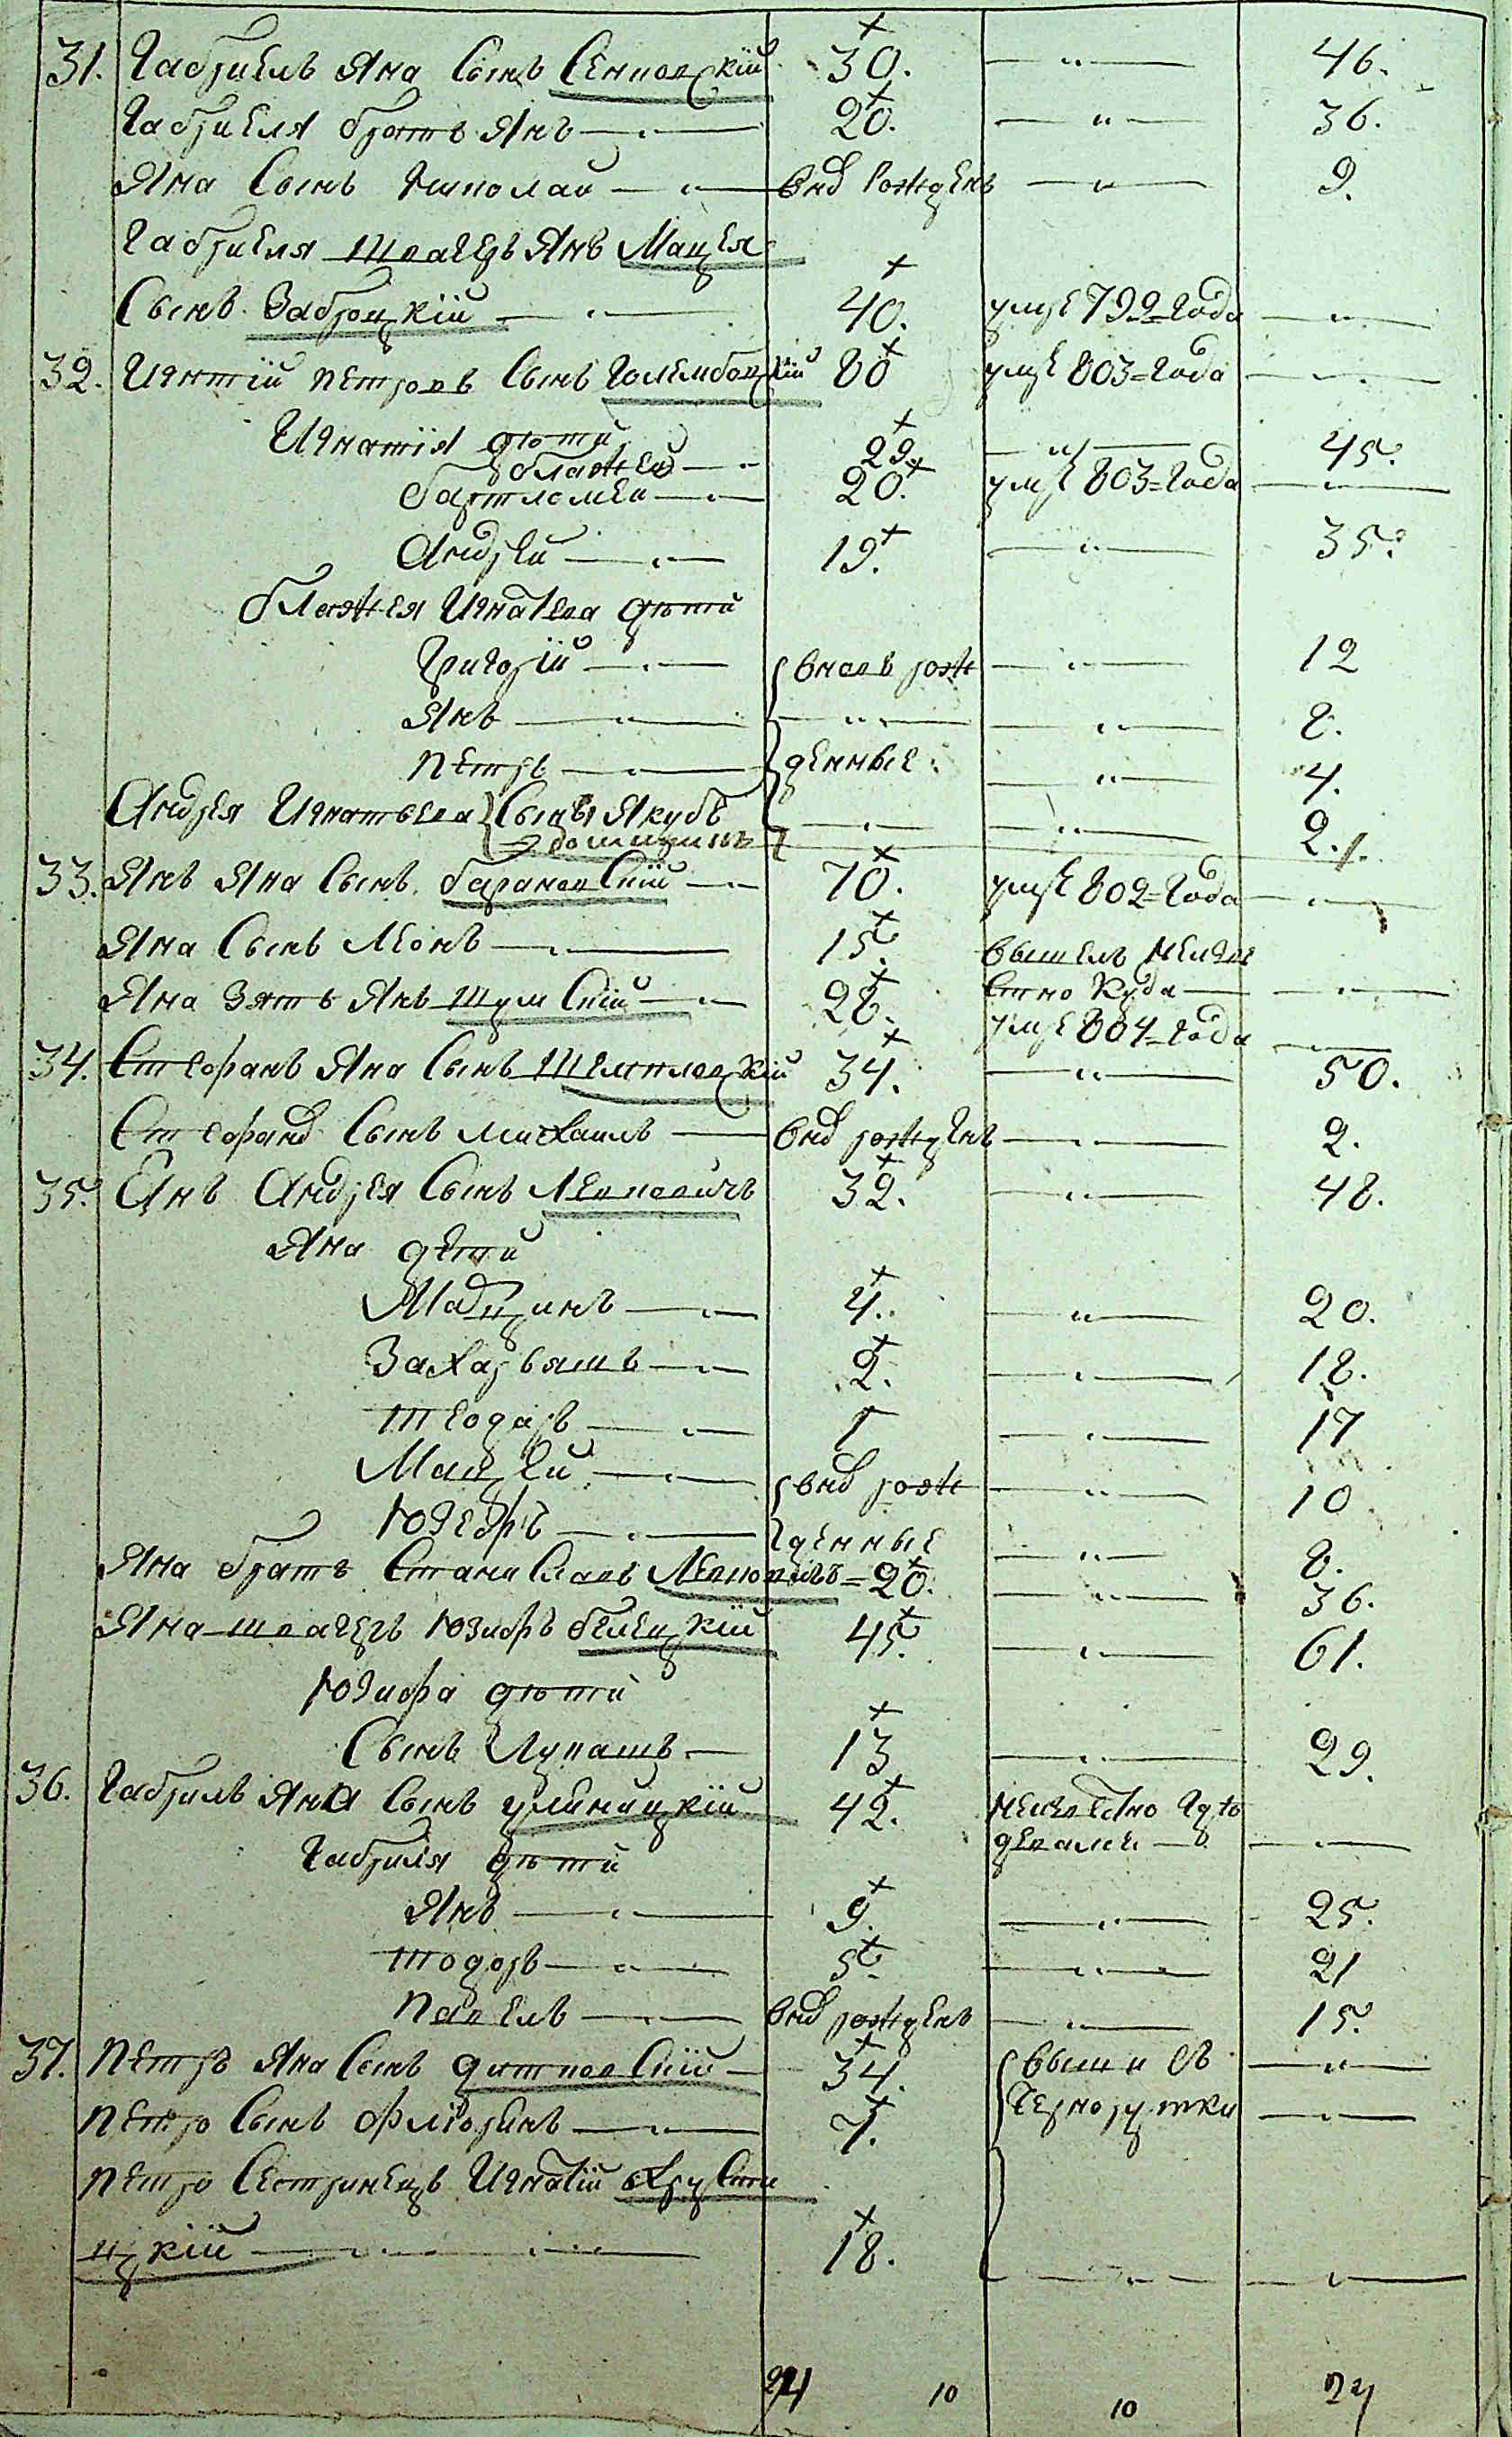 31. Габриель Яна Сынъ Сенповскій 30. — " — 46.
Габриеля братъ Янъ — " — 20. — " — 36.
Яна Сынъ Николай — " — вно рожденъ — " — 9.
Габриеля швагеръ Янъ Мацея
Сынъ Заброцкій — " — 40. умре 792=года — " —
32. Игнтій Петровъ Сынъ Голембовскій 80 умре 803=года — " —
Игнатія дѣти
Блажей — " 29. — " — 45.
Бартломей — " — 20. умре 803=года — " —
Андрей — " — 19. — " — 35.
Блажея Игнатева дѣти
Григорій — " — вновь рож — " — 12
Янъ — " — — " — — " — 8.
Петръ — " — денные: — " — 4.
Андрея Игнатьева Сынъ Якубъ — " — — " — 2. 1.
2 доминикъ
33. Янъ Яна Сынъ барановскій — " 70. умре 802=года — " —
Яна Сынъ Леонъ — " — 15. вышелъ неизве
Яна Зять Янъ Шумскій — " 28. стно куда — " —
умре 804=года — " —
34. Стефанъ Яна Сынъ 34. — " — 50.
Стефана Сынъ михаилъ — вно рожденъ — " — 2.
35. Янъ Андрея Сынъ Левковичъ 32. — " — 48.
Яна дети
Марцинъ — " 4. — " — 20.
Захарьяшъ — " 2. — " — 18.
Теодоръ — " 1 — " — 17
Мацей — " — вно рож — " — 10
Юзефъ — " — денные — " — 8.
Яна братъ Станиславъ Левковичъ = 20. — " — 36.
Яна швагеръ Юзифъ белецкій 45. — " — 61.
Юзифа дѣти
Сынъ Лукашъ — 13 — " — 29.
36. Габриль Яна Сынъ улиницкій 42. неизвестно где
девалси — " —
Габриля дѣти
Янъ — " — 9. — " — 25.
Тодоръ — " — 5. — " — 21
Павелъ — " — вно рожденъ — " — 15.
37. Петръ Яна Сынъ дитковскій — 34. выши въ — " —
Петро Сынъ Флюринъ — " — 7. Чернорутки — " —
Петро Сестринецъ Игнатій охрусти
цкій — " — " — 18. — " — — " —
24 10 10 24